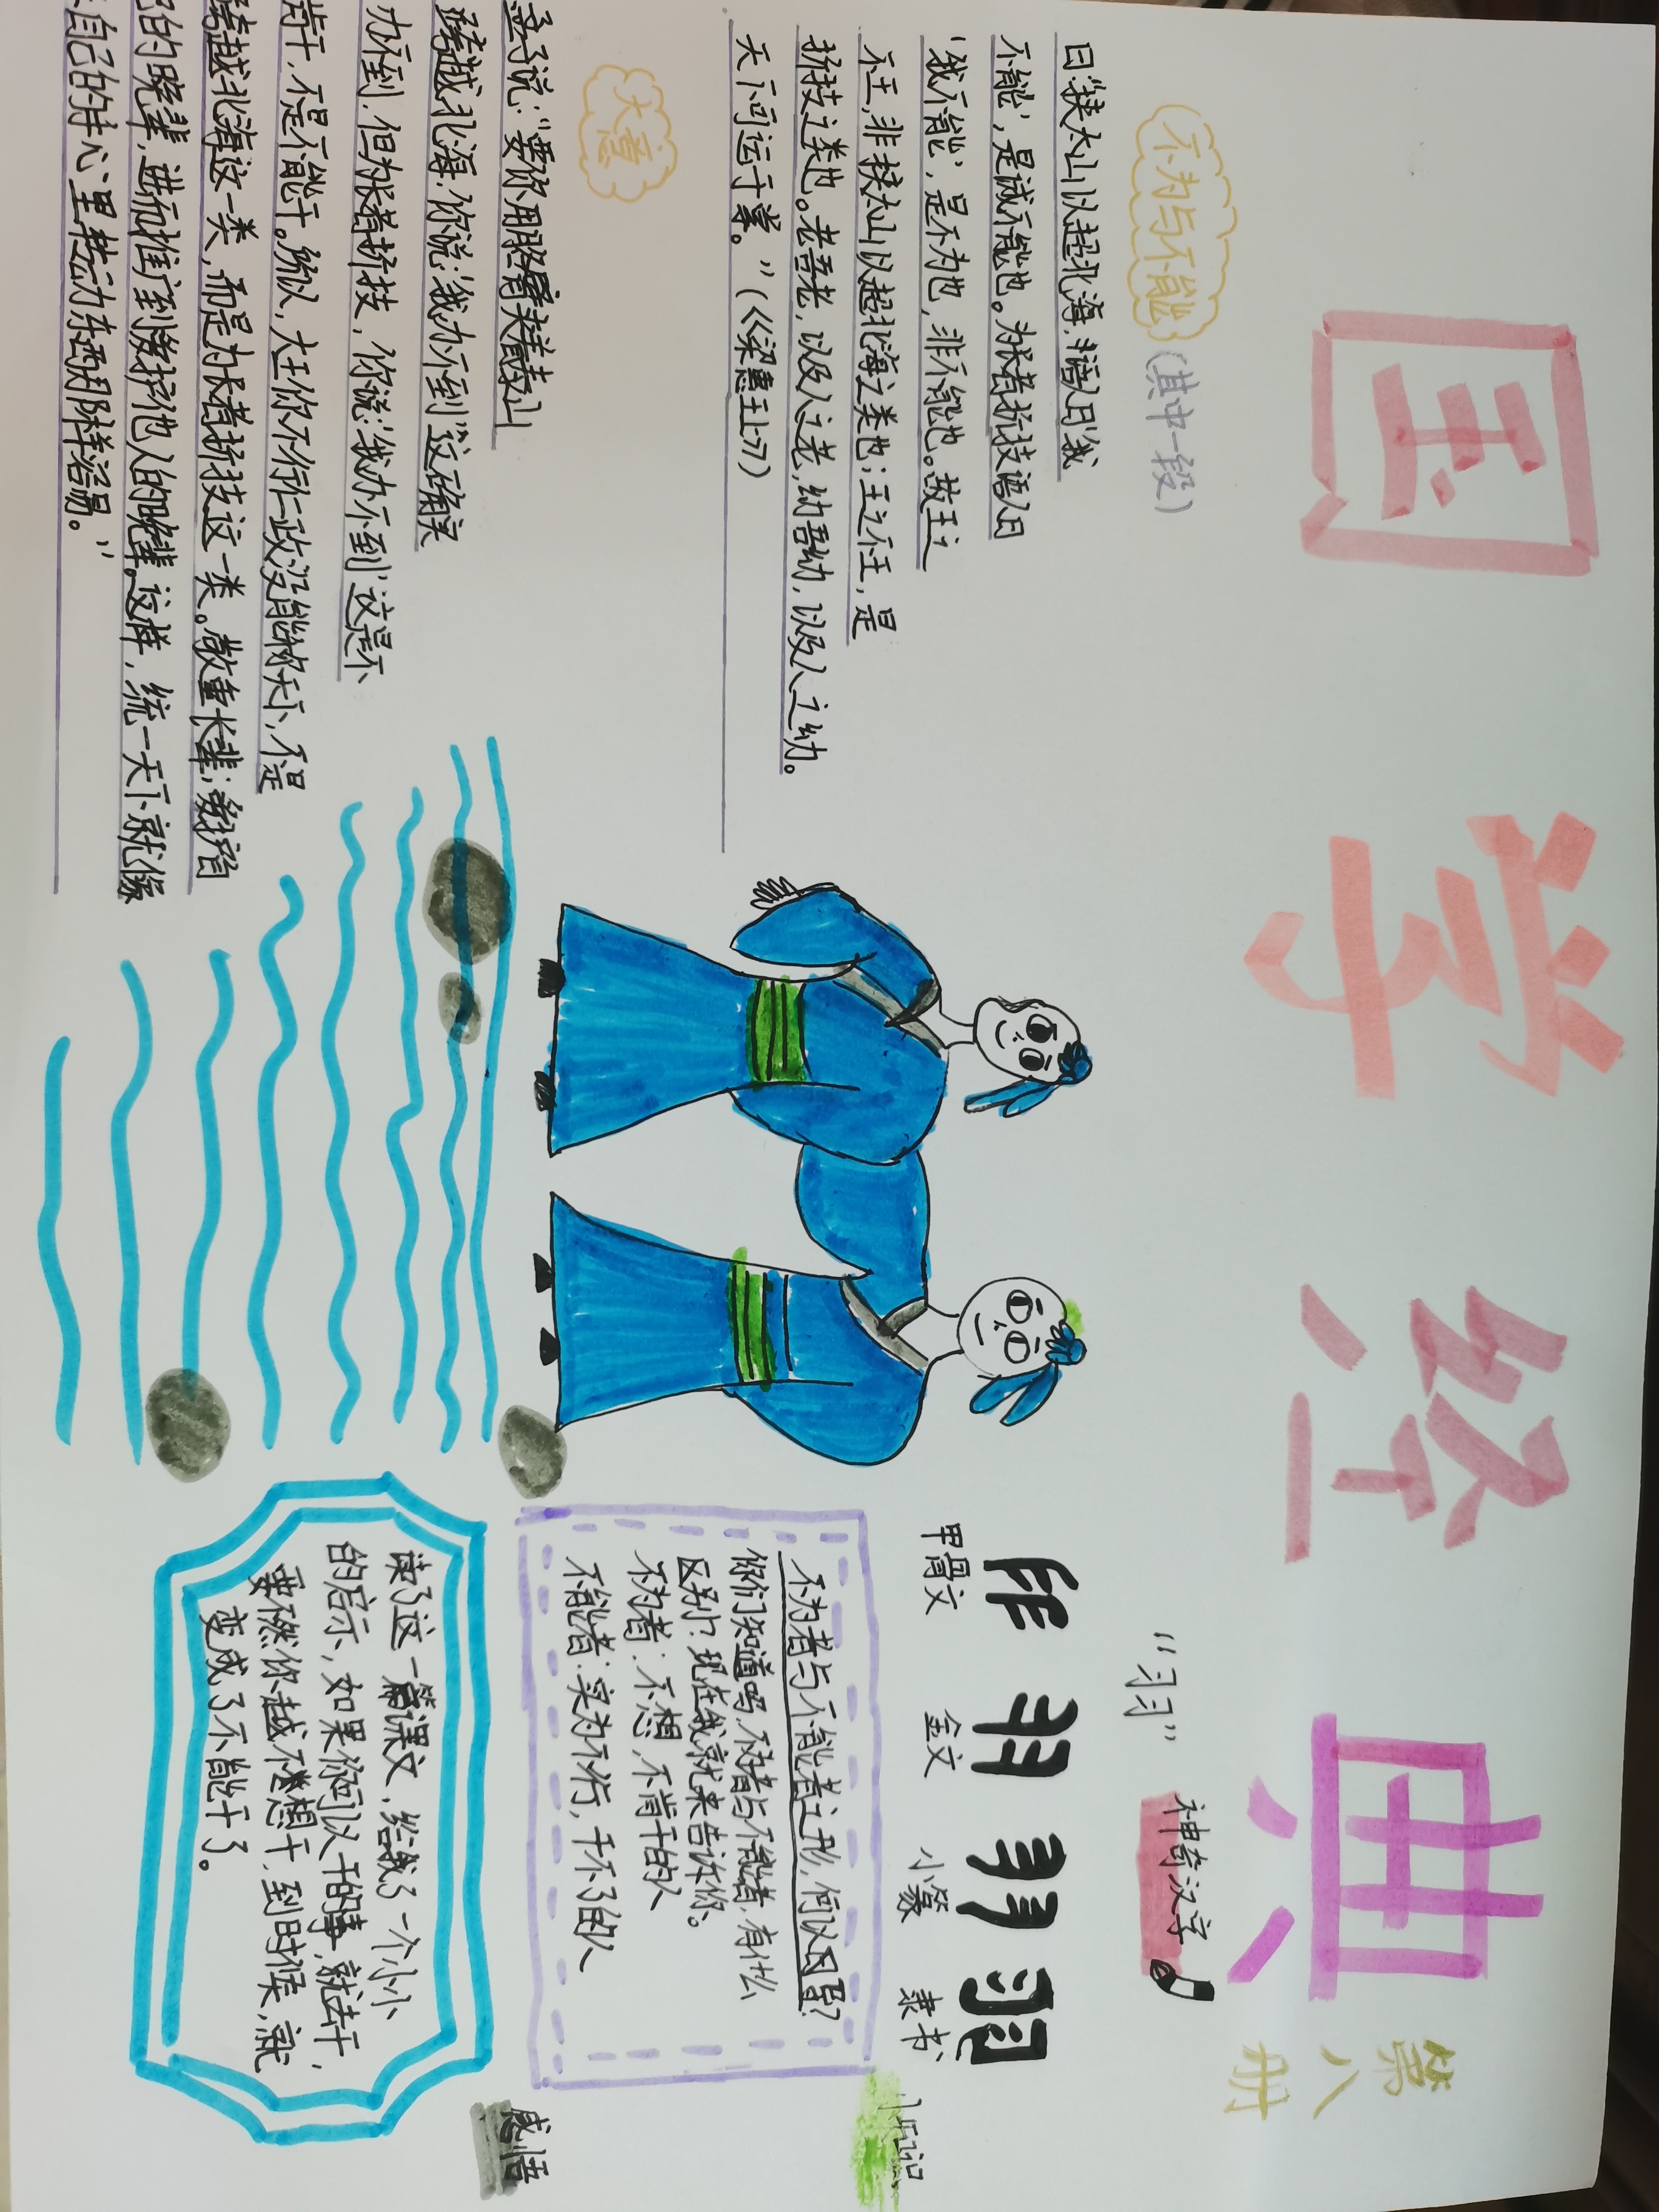 国学经典
第八册
不为与不能(其中一段)
曰“挟太山以超北海,语人曰‘我
不能’,是诚不能也。为长者折技语人曰
‘我不能’,是不为也,非不能也。故王之
不王,非挟太山以超北海之类也;王之不王,是
折技之类也。老吾老,以及人之老,幼吾幼,以及人之幼。
天下可运于掌。”(《梁惠王上7)
大意
孟子说:“要你用胳膊夹着泰山
跨越北海,你说:‘我办不到’这确实
办不到,但为长者折技,你说:‘我办不到’这是不
肯干,不是不能干。所以,大王你不行仁政没能称天下,不是
跨越北海这一类,而是为长者折技这一类。敬重长辈;爱护自
己的晚辈,进而推广到爱护他人的晚辈。这样,统一天下就像
自己的手心里转动东西那样容易。”
“习习”
神奇汉字
甲骨文 金文 小篆 隶书
小知识
不为者与不能者之形,何以异?
你们知道吗,不为者与不能者,有什么
区别?现在我就来告诉你。
不为者:不想,不肯干的人
不能者:实为不行,干不了的人
感悟
读了这一篇课文,给我了一个小小
的启示,如果你可以干的事,就去干,
要不燃你越不想干,到时候,就
变成了不能干了。